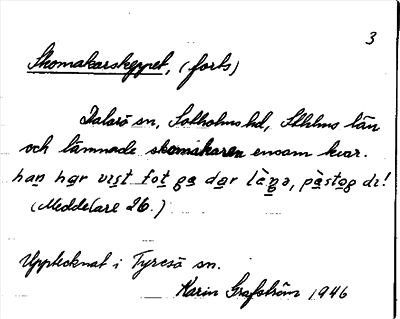 3
Skomakarskeppet, (forts)
Dalarö sn, Sotholms hd, Sthlms län
och lämnade skomakaren ensam kvar.
han har vist fot ga dar lànga, pàstog di!
(Meddelare 26.)
Upptecknat i Tyresö sn.
Karin Grafström 1946